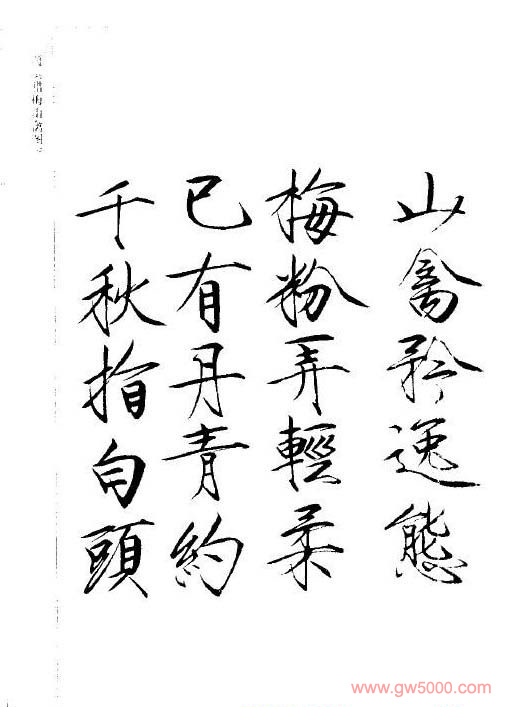 山禽矜逸態
梅粉弄輕柔
已有丹青約
千秋指白頭
www.gw5000.com